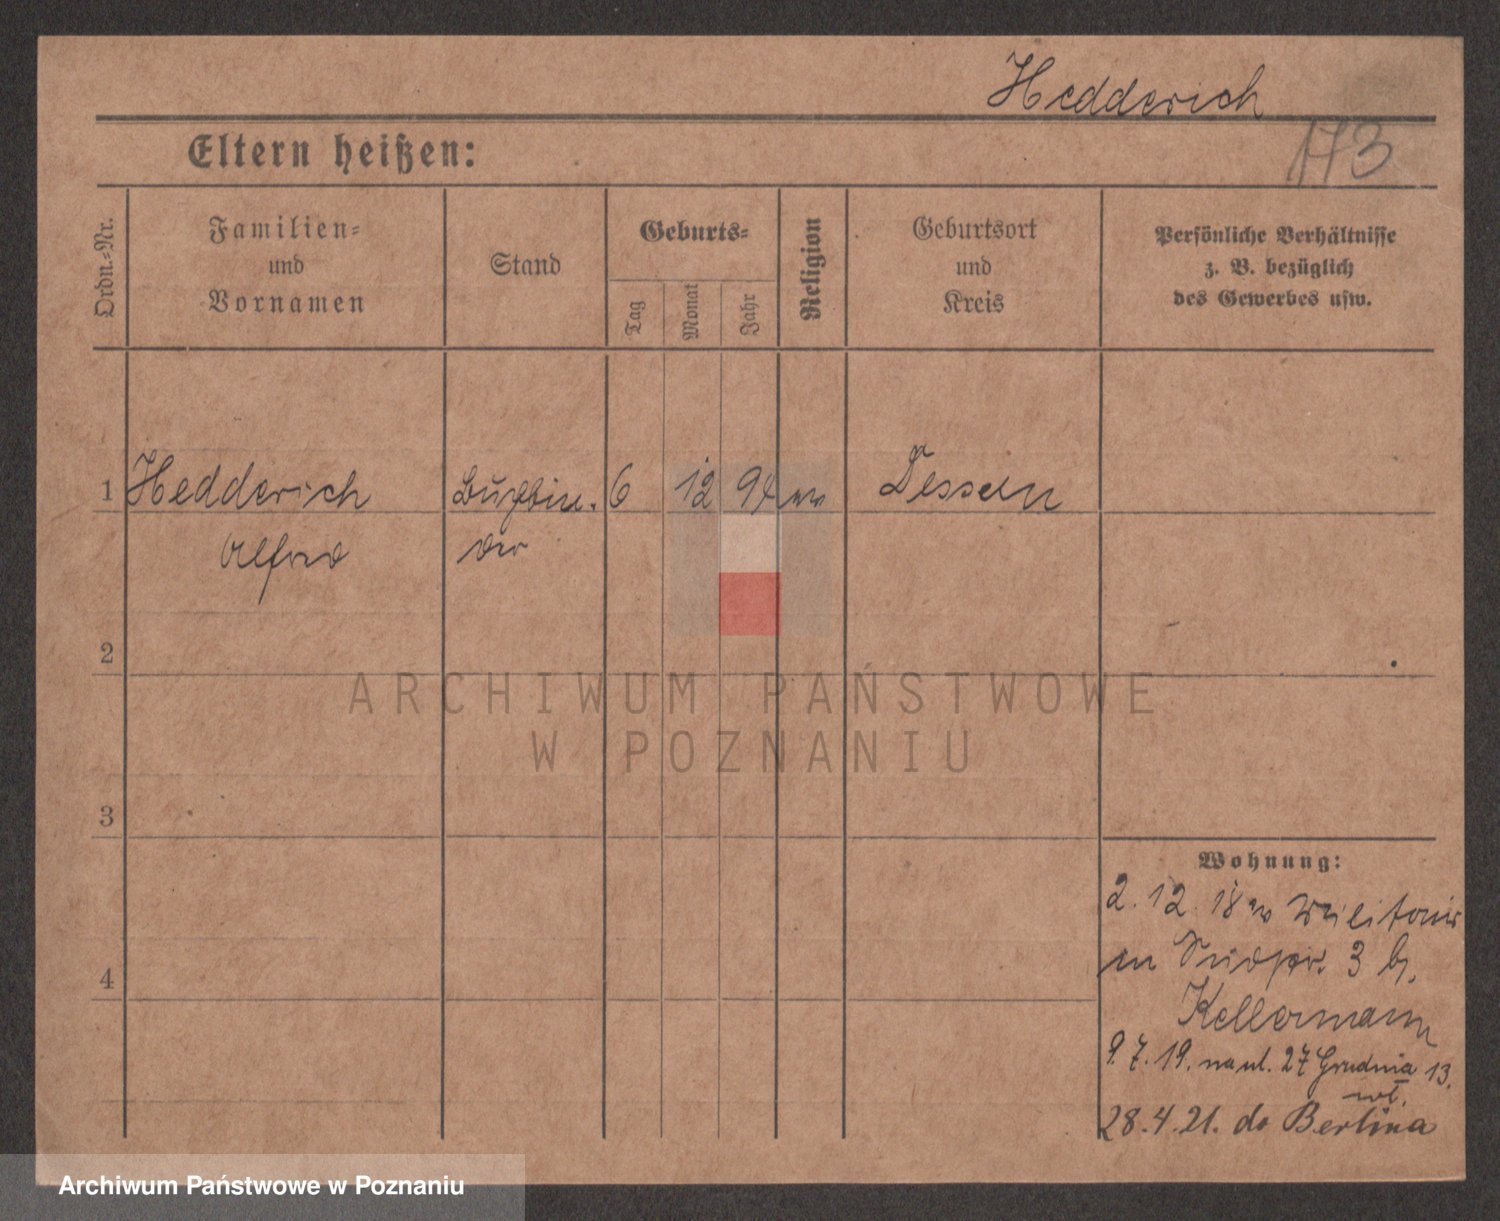 Hedderich
173
Eltern heißen:
Ordn.-Nr.
Familien-
und
Vornamen
Stand
Geburts-
Tag
Monat
Jahr
Religion
Geburtsort
und
Kreis
Persönliche Verhältnisse
z. B. bezüglich
des Gewerbes usw.
1 Hedderich Buchbin- 6 12 94 ev
Alfred der
2
3
4
Wohnung:
2. 12. 18 Militär
3 b.
Kellermann
9. 7. 19. na ul. 27 Grudnia 13.
wł.
28. 4. 21. do Berlina
ARCHIWUM PAŃSTWOWE
W POZNANIU
Archiwum Państwowe w Poznaniu